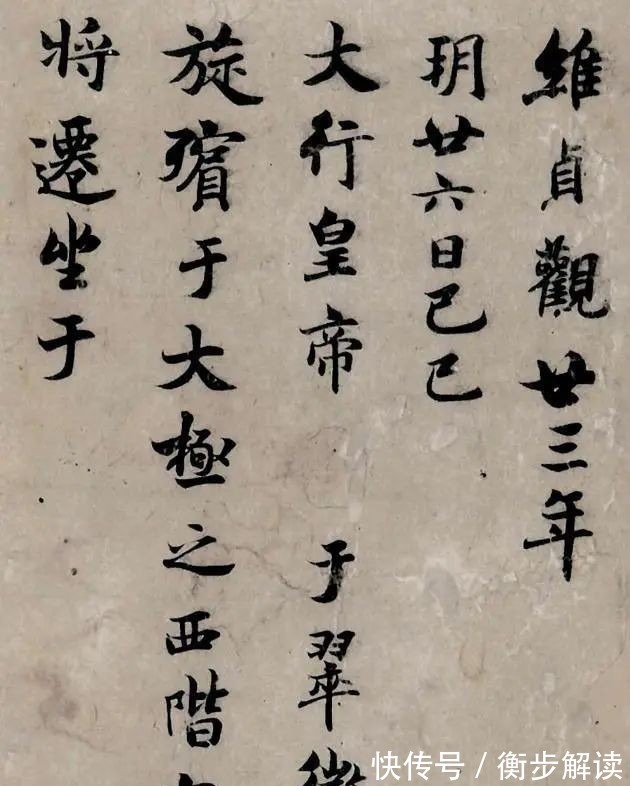 維貞觀廿三年
玥廿六日己巳
大行皇帝 于翠微
旋殯于大極之西階
將遷坐于
快传号/衡步解读